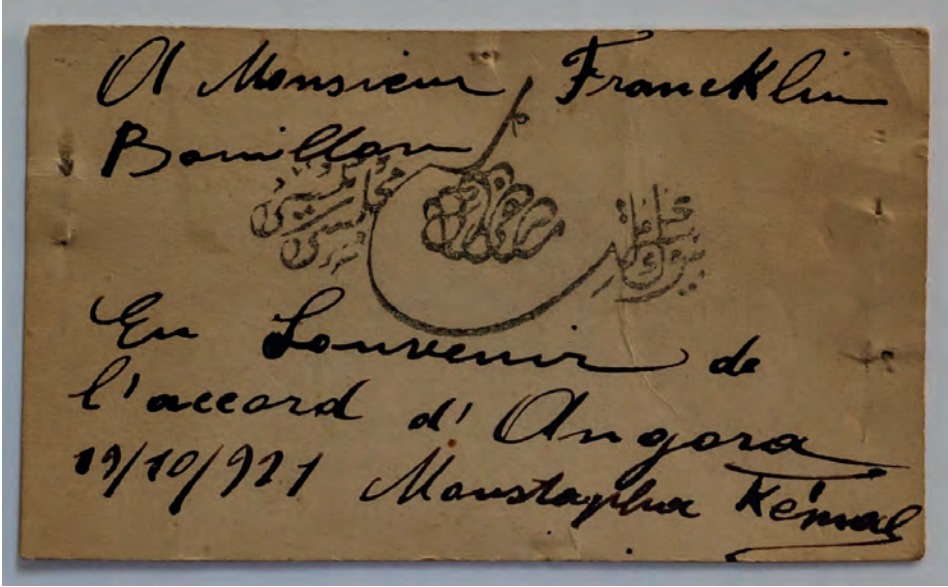 A Monsieur Francklin
Bouillon
En Souvenir de
l'accord d'Angora
19/10/921 Moustapha Kémal